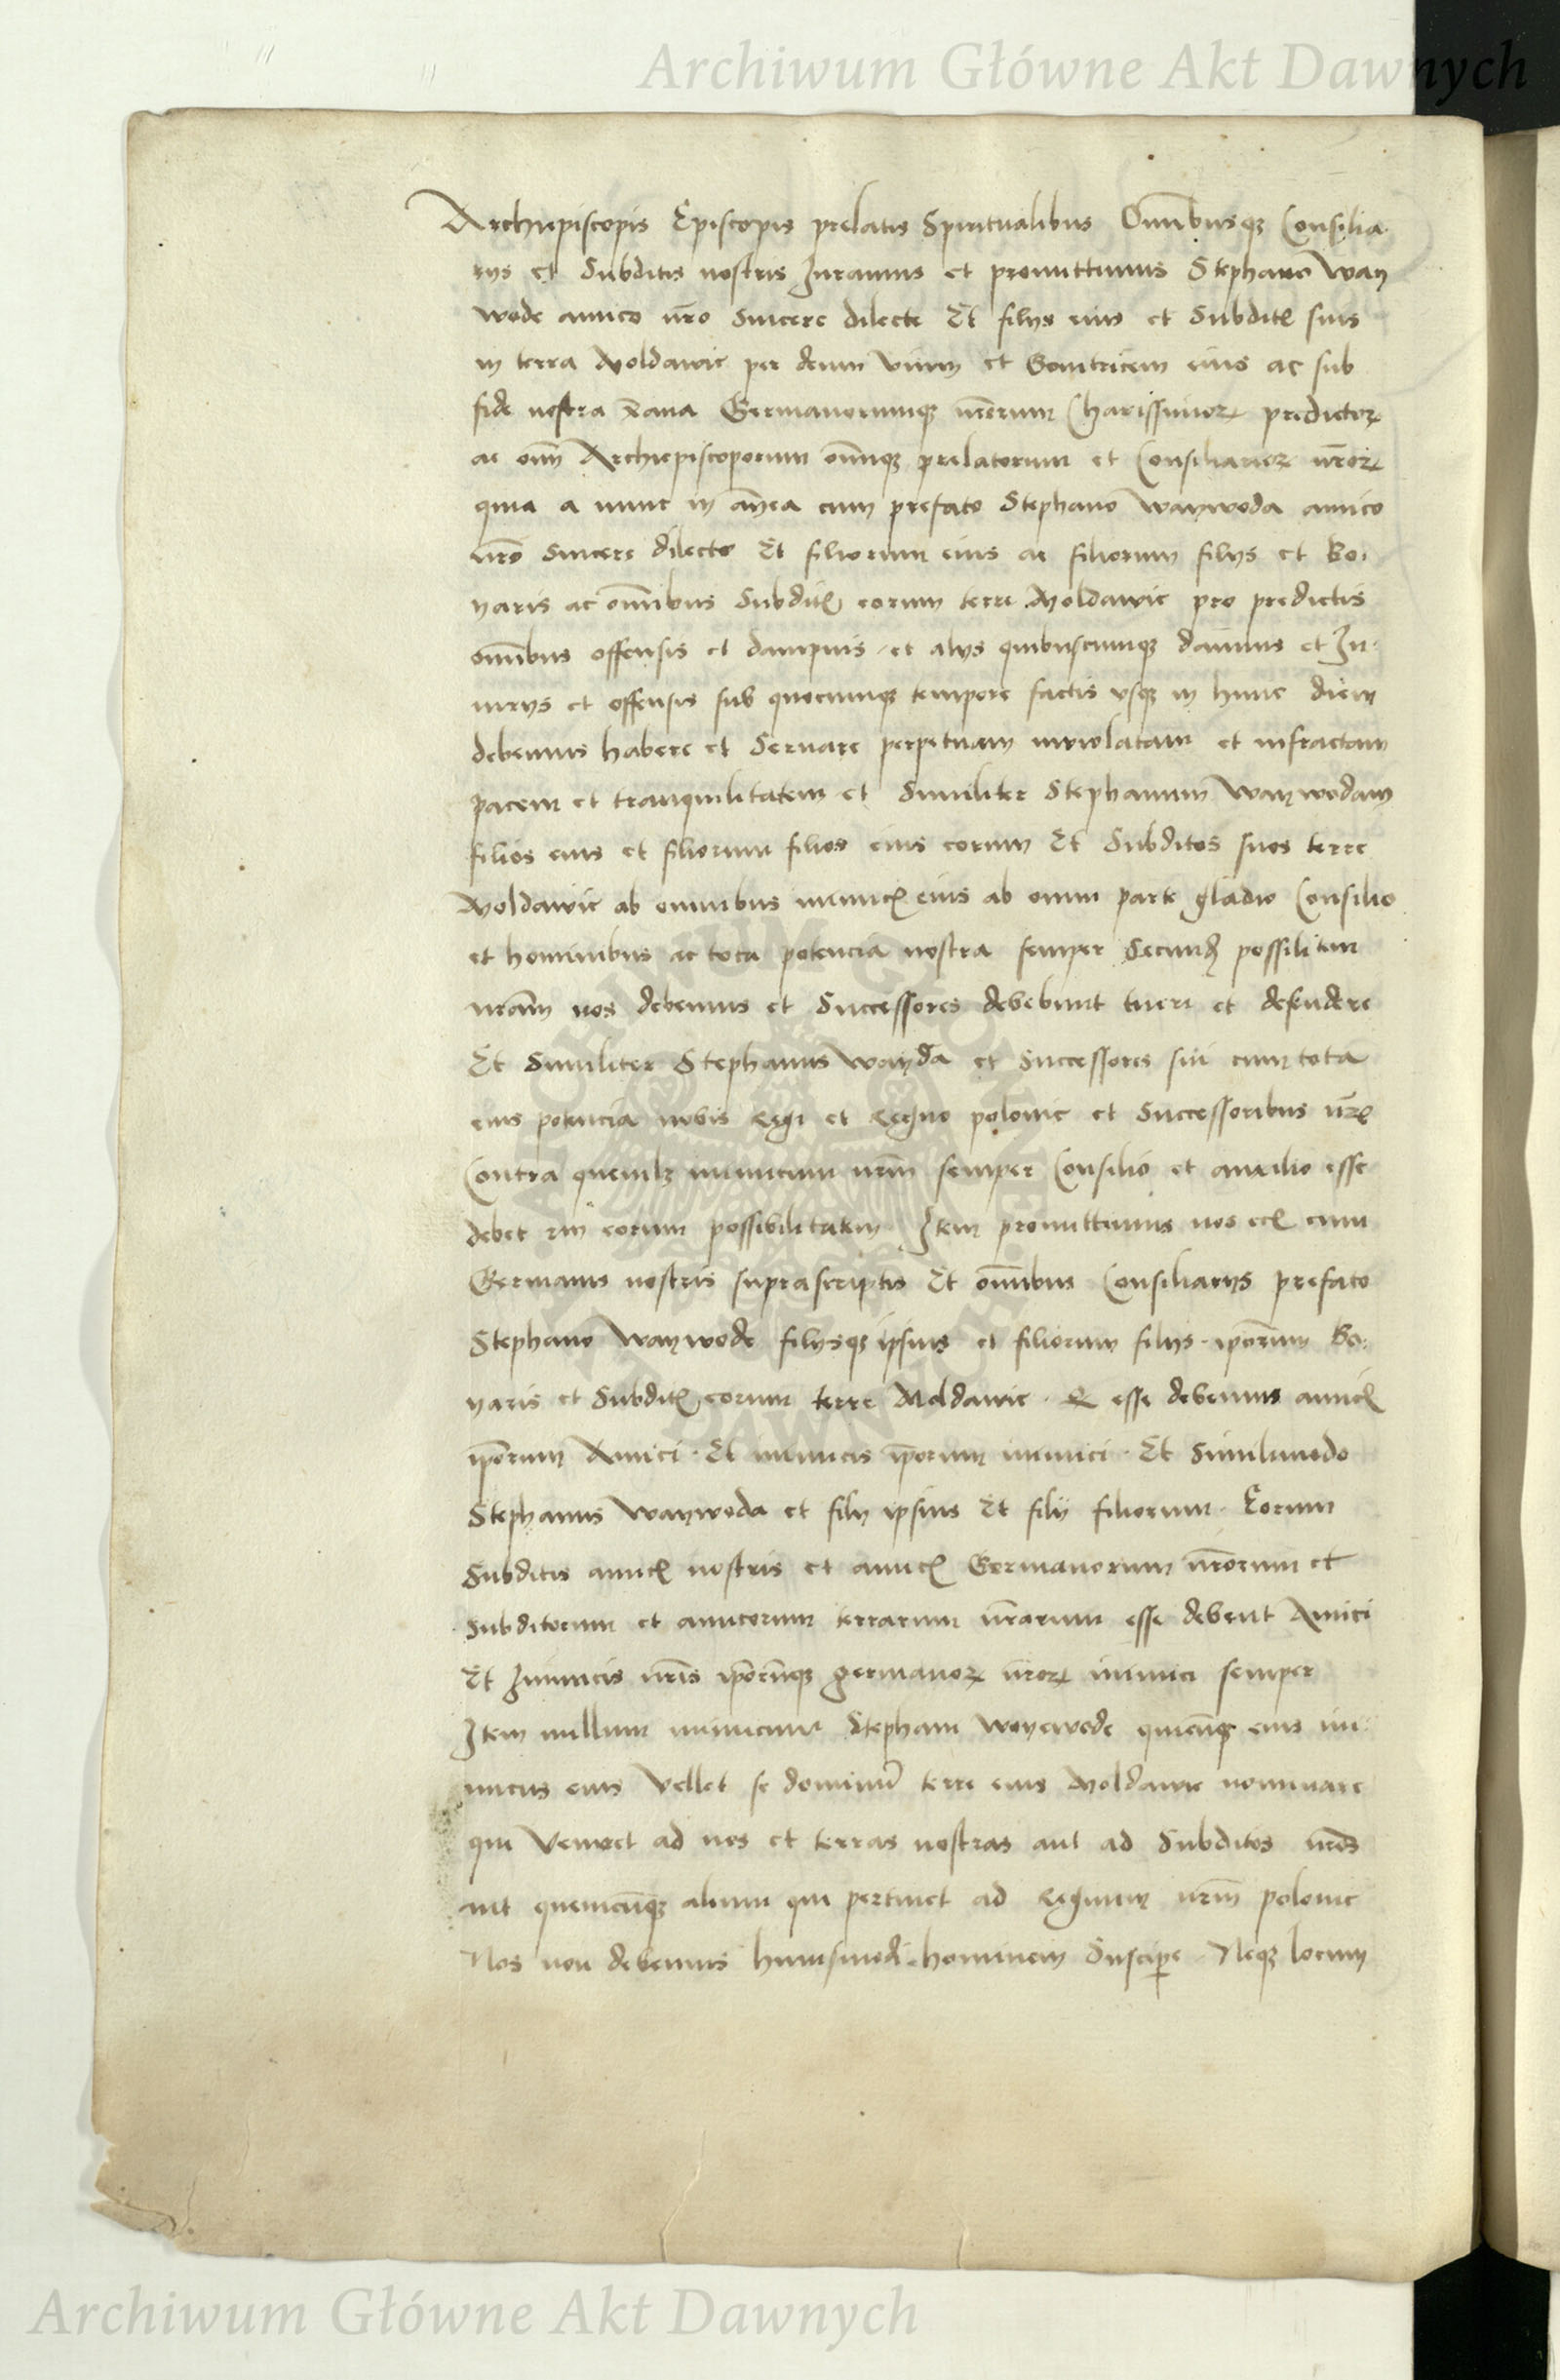 Archiwum Główne Akt Dawnych
Archiepiscopis Episcopis prelatis Spiritualibus Om̄ibusqꝫ Consilia
rys et Subditis nostris Iuramus et promittimus Stephano Way
wode amico nr̄o Sincere dilecte Et filys eius et Subditꝭ suis
in terra Moldawie per deum vivum et Genitricem eius ac sub
fide nostra xana Germanorumqꝫ nr̄orum Charissimoꝝ predictoꝝ
ac om̄ Archiepiscoporum om̄iqꝫ prelatorum et Consiliarioꝝ nr̄oꝝ
quia a nunc in an̄ea cum prefato Stephano Waywoda amico
nr̄o Sincere dilecto Et filiorum eius ac filiorum filys et Bo
yaris ac om̄ibus Subditꝭ eorum terre Moldawie pro predictis
om̄ibus offensis et dampnis et alys quibuscumqꝫ damnis et In
iurys et offensis sub quocumqꝫ tempore factis vsqꝫ in hunc diem
debemus habere et Seruare perpetuam inviolatam et infractam
pacem et tranquilitatem et Similiter Stephanum Waywodam
filios eius et filiorum filios eius eorum Et Subditos suos terre
Moldawie ab omnibus inimicꝭ eius ab omni parte gladio Consilio
et hominibus ac tota potencia nostra semper Secundꝫ possilitatem
nr̄am nos debemus et Successores debebunt tueri et defendere
Et Similiter Stephanus Wayda et Successores sui cum tota
eius potencia nobis Regi et Regno polonie et Successoribus nr̄ꝭ
Contra quemlꝫ inimicum nr̄m semper Consilio et auxilio esse
debet eorum possibilitatem Item promittimus nos ecꝭ cum
Germanis nostris suprascriptis Et om̄ibus Consiliarys prefato
Stephano Waywode filysqꝫ ipsius et filiorum filys ip̄orum Bo
yaris et Subditꝭ eorum terre Moldawie Q esse debemus amicꝭ
ip̄orum Amici Et inimicis ip̄orum inimici Et Similimodo
Stephanus Waywoda et fily ipsius Et filii filiorum Eorum
Subditis amicꝭ nostris et amicꝭ Germanorum nr̄orum et
Subditorum et amicorum terrarum nr̄arum esse debent Amici
Et Inimicis nr̄is ip̄orūqꝫ germanoꝝ nr̄oꝝ inimici semper
Item nullum inimicum Stephani Woyewode quicūqꝫ eius ini
micus eius Vellet se dominū terre eius Moldawie nominare
qui Veniret ad nos et terras nostras aut ad Subditos nr̄os
aut quemcūqꝫ alium qui pertinet ad Regnum nr̄m polonie
Nos non debemus huiusmodi hominem Suscipe Neqꝫ locum
Archiwum Główne Akt Dawnych